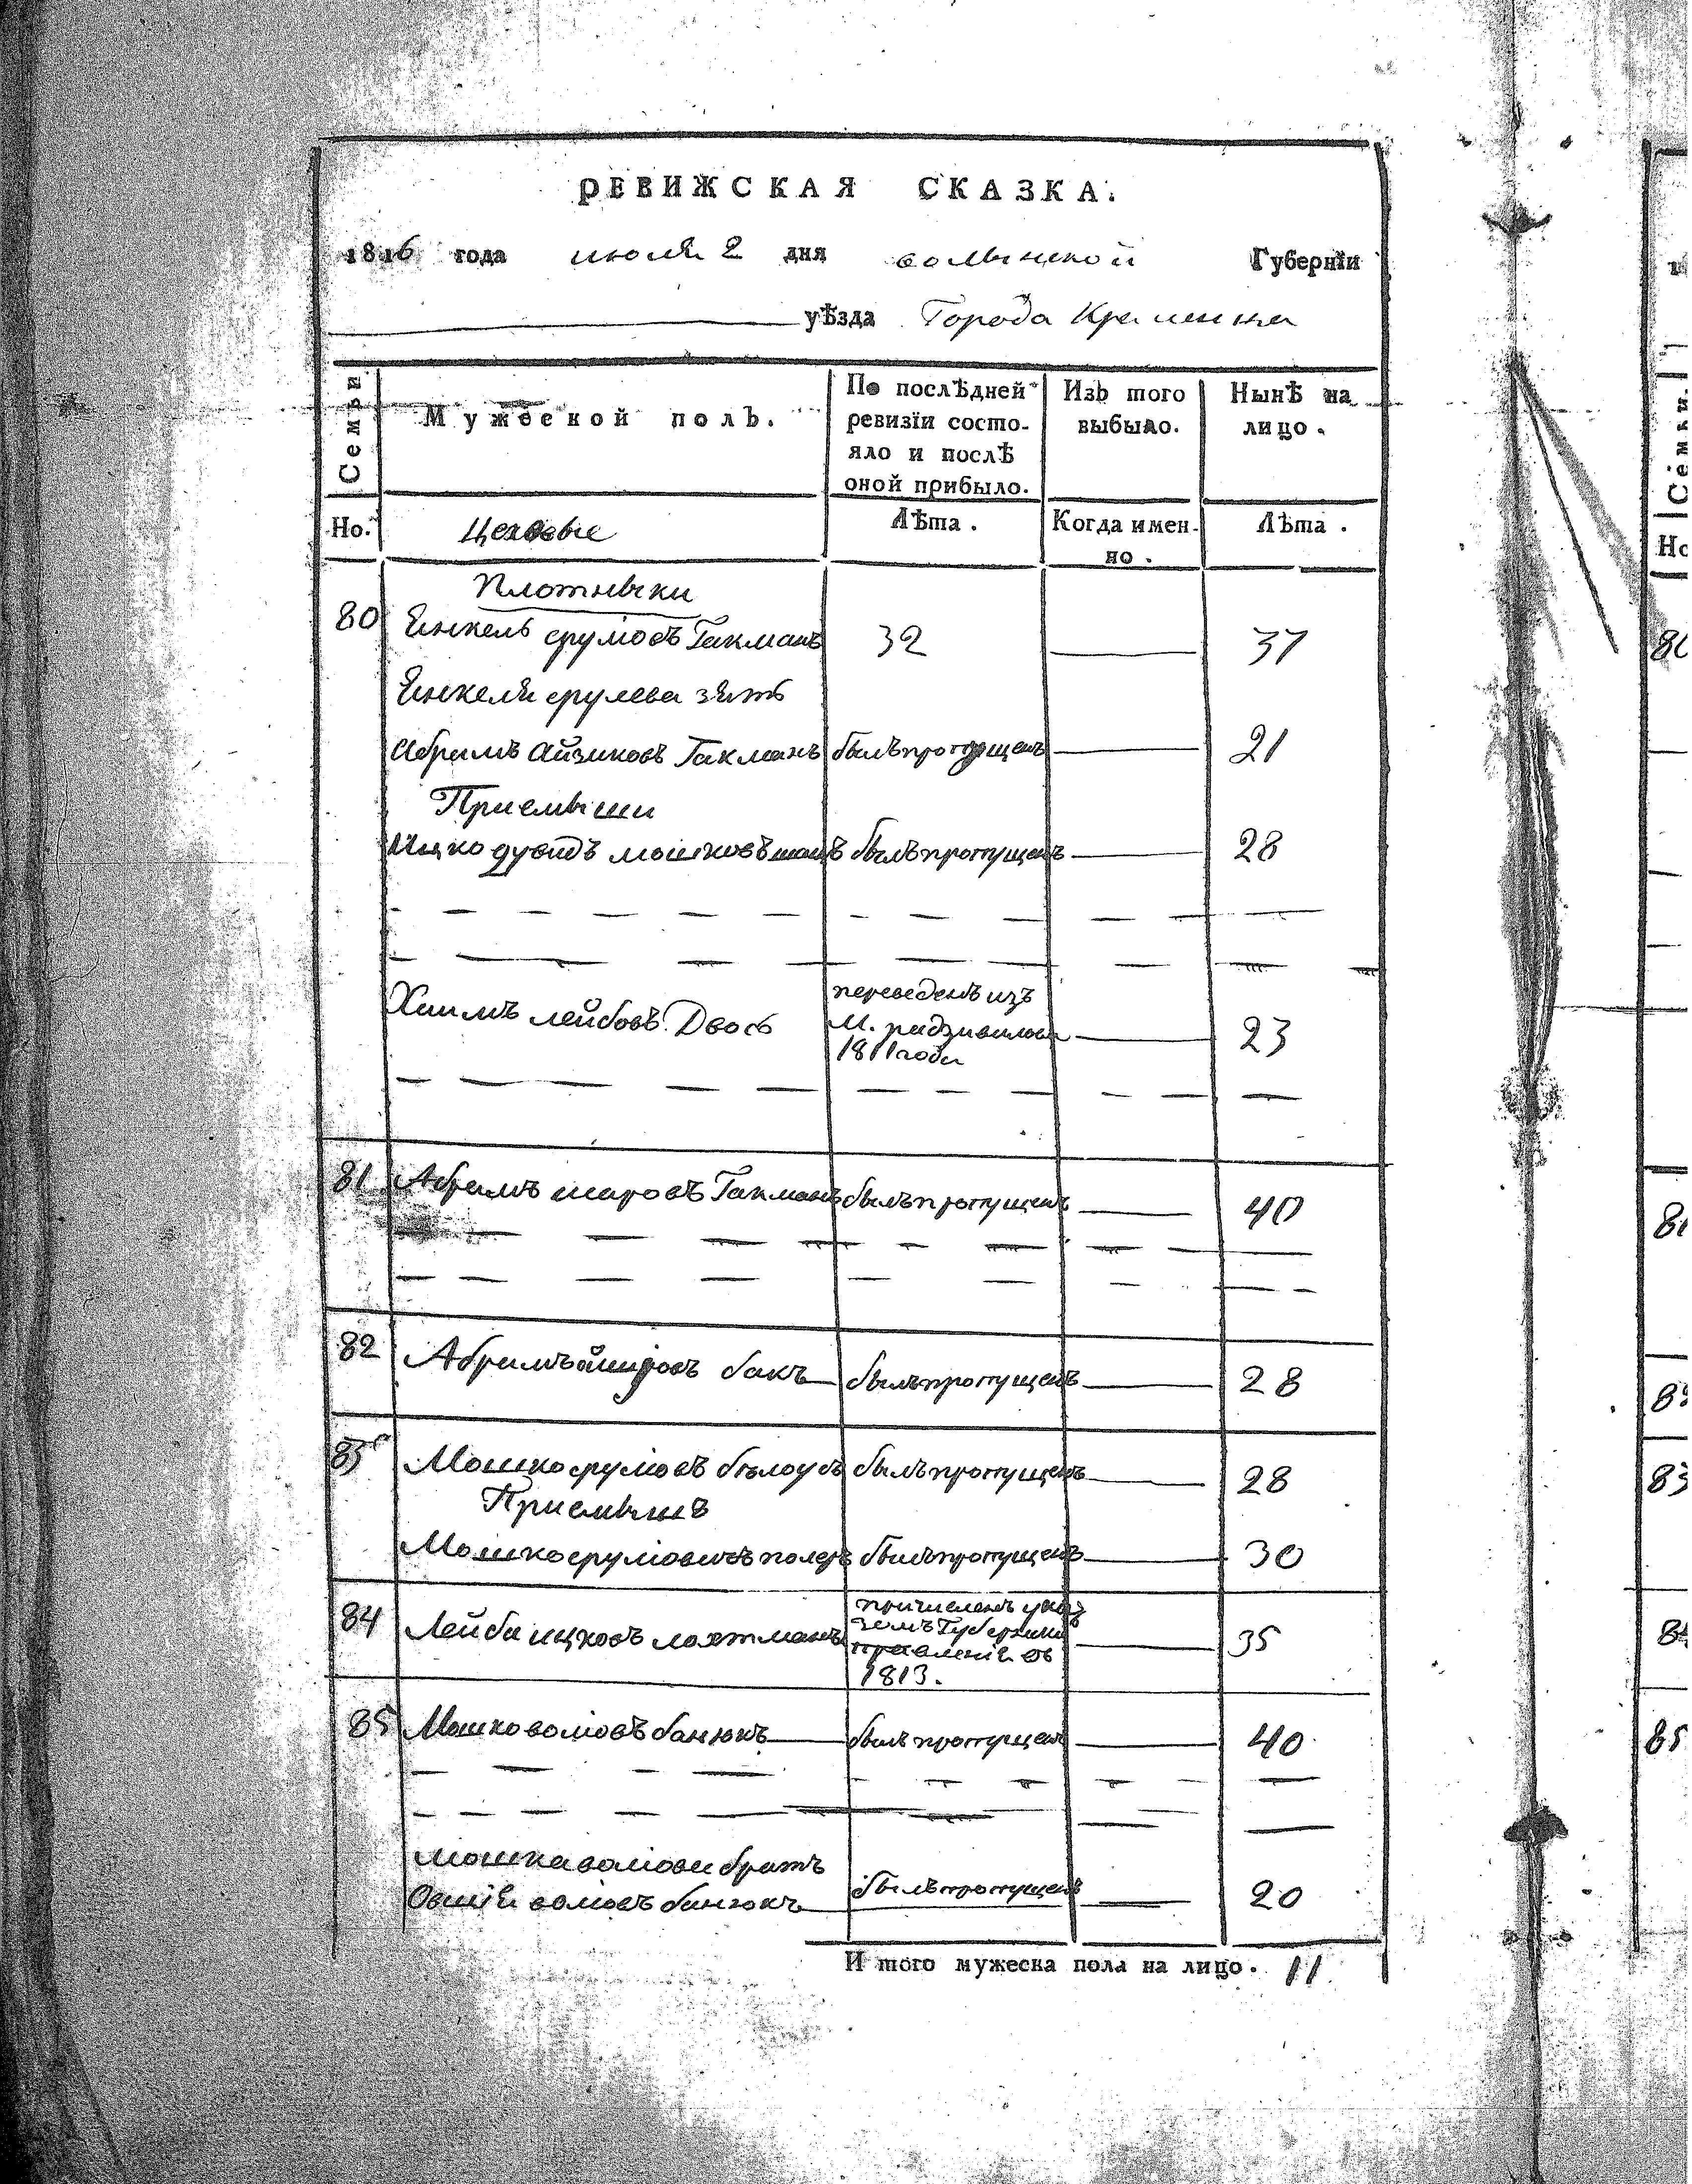 РЕВИЖСКАЯ СКАЗКА.
1816 года июля 2 дня волынской Губернїи
уѣзда Города Кременца
Семьи
Мужеской полъ.
По послѣдней ревизїи состояло и послѣ оной прибыло.
Изъ того выбыло.
Нынѣ на лицо.
Но.
Цеховые
Лѣта.
Когда именно.
Лѣта.
Плотныки
80 Янкель срулiовъ Гакманъ 32 37
Янкеля срулева зять
Абрамъ Айзиковъ Гакманъ былъ пропущенъ 21
Приемыши
Ицко дувидъ мошковъ былъ пропущенъ 28
Хаимъ лейбовъ Двось переведенъ изъ
м. радзивилова
1811 года
23
81 Абрамъ Гакманъ былъ пропущенъ 40
82 Абрамъ бакъ былъ пропущенъ 28
83 Мошко срулiовъ бѣлоусъ былъ пропущенъ 28
Приемышъ
Мошко срулiовичъ былъ пропущенъ 30
84 Лейба ицковъ лахтманъ причисленъ ука
зомъ Губернски
правленiя въ
1813.
35
85 Мошко волiовъ банюкъ былъ пропущенъ 40
мошка волiова братъ
Овшiя волiовъ банюкъ былъ пропущенъ 20
И того мужеска пола на лицо. 11
Но
80
83
85